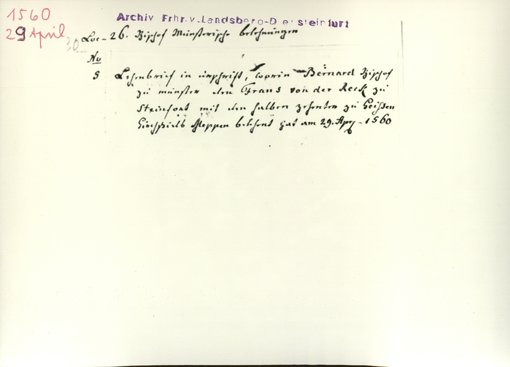 1560
29 April
Archiv Frhr.v.Landsberg-D ersteinfurt
Loc. 26. Bischof Münsterische belehnungen
No
8 Lehnbrief in uhrschrift, worin Bernard Bischof
zu münster den Frans von der Reck zu
Steinfort mit den halben zehenten zu
Kirchspiels Meppen belehnt hat am 29. Apr. 1560